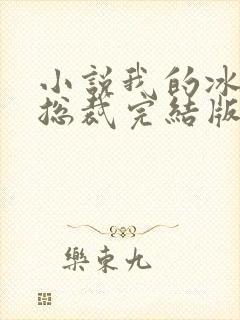 小說我的冰
总裁完結版
樂東九